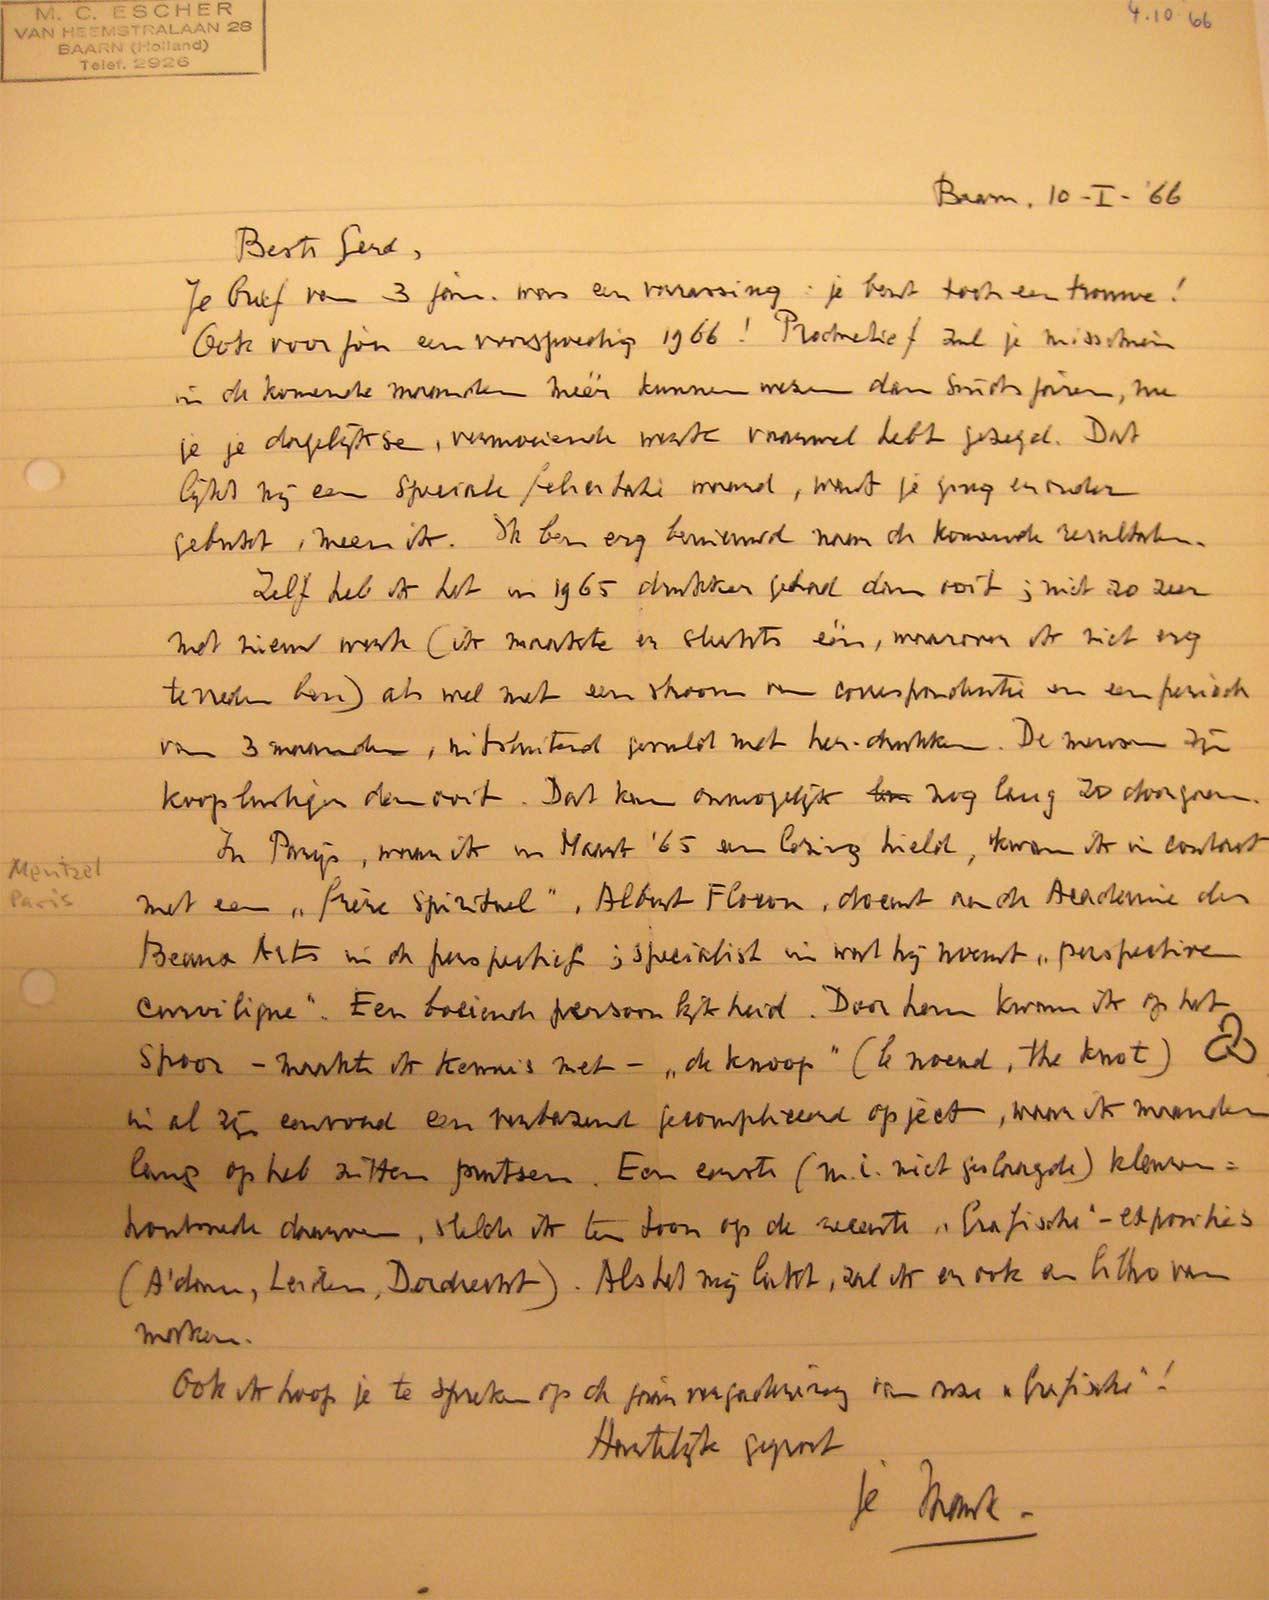 M. C. ESCHER
VAN HEEMSTRALAAN 28
BAARN (Holland)
Telef. 2926
4.10.66
Baarn, 10-I-'66
Beste Gerd,
Je brief van 3 jan. was een verrassing: je bent toch een trouwe!
Ook voor jou een voorspoedig 1966! Productief zul je misschien
in de komende maanden méér kunnen wezen dan sinds jaren, nu
je je dagelijkse, vermoeiende werk vaarwel hebt gezegd. Dat
lijkt mij een speciale felicitatie waard, want je ging eronder
gebukt, meen ik. Ik ben erg benieuwd naar de komende resultaten.
Zelf heb ik het in 1965 drukker gehad dan ooit; niet zo zeer
met nieuw werk (ik maakte er slechts één, waarover ik niet erg
tevreden ben) als wel met een stroom van correspondentie en een periode
van 3 maanden, uitsluitend gevuld met her-drukken. De mensen zijn
kooplustiger dan ooit. Dat kan onmogelijk nog lang zo doorgaan.
In Parijs, waar ik in Maart '65 een lezing hield, kwam ik in contact
Mentzel
Paris
met een „frère spirituel", Albert Flocon, docent aan de Academie des
Beaux Arts in de perspectief; specialist in wat hij noemt „perspective
curviligne". Een boeiende persoonlijkheid. Door hem kwam ik op het
spoor - maakte ik kennis met - „de knoop" (le noeud, the knot)
in al zijn eenvoud een verbazend gecompliceerd opject, waar ik maanden
lang op heb zitten peutsen. Een eerste (m.i. niet geslaagde) kleuren=
houtsnede daarvan, stelde ik ten toon op de recente „Grafische"-exposities
(A'dam, Leiden, Dordrecht). Als het mij lukt, zal ik er ook een litho van
maken.
Ook ik hoop je te spreken op de jaarvergadering van onze „Grafische"!
Hartelijk gegroet
je Mauk.